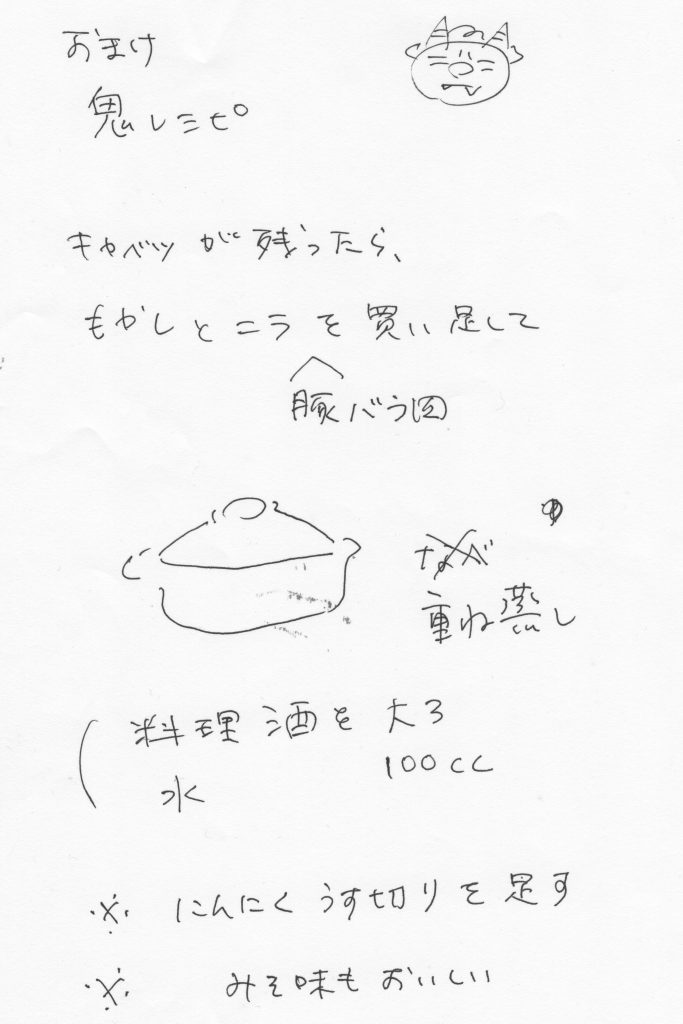 おまけ
鬼レシピ
キャベツが残ったら、
もやしとニラを買い足して
豚バラ肉
重ね蒸し
料理酒を 大3
水 100cc
※ にんにくうす切りを足す
※ みそ味もおいしい